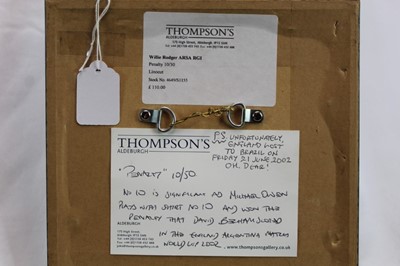 THOMPSON'S
ALDEBURGH
Willie Rodger ARSA RGI
Penalty 10/50
Linocut
£ 110.00
THOMPSON'S
ALDEBURGH
P.S. UNFORTUNATELY,
ENGLAND LOST
TO BRAZIL ON
FRIDAY 21 JUNE 2002
OH DEAR!
"PENALTY" 10/50
No 10 IS SIGNIFICANT AS MICHAEL OWEN
PLAYS WITH SHIRT No 10 AND WON THE
PENALTY THAT DAVID BECKHAM SCORED
IN THE ENGLAND ARGENTINA MATCH
WORLD CUP 2002.
THOMPSON'S
ALDEBURGH
www.thompsonsgallery.co.uk